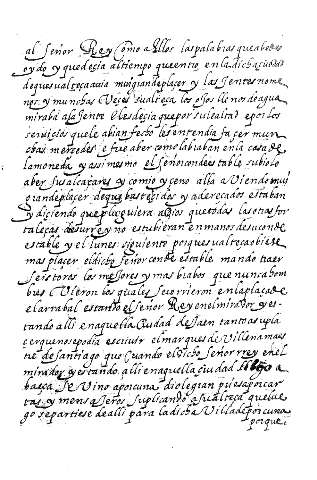 al señor Rey como a ellos las palabras que abedes
oydo y que decia al tiempo que entro en la dicha ciudad
de que su alteça avia muy gran deplaçer y las Jentes no me
nos y munchas veces su alteça los ojos llenos de agua
miraba a la Jente e les decia que por su lealtad e por los
servicios que le abian fecho les entendia façer mun
chas mercedes e fue a ver como labraban en la casa de
la moneda y assi mesmo el señor condestable subiolo
a ber sus alcaçares y comio y çeno alla y viendo muy
gran deplaçer de que bastecidos y adereçados estaban
y diciendo que pluguiera a dios que todas las otras for
taleças de su rreyno estubieran en manos de su conde
estable y el lunes siguiente porque su alteça obiese
mas plaçer el dicho señor condestable mando traer
seis toros los mejores y mas brabos que nunca bom
bres vieron los quales se corrieron en la plaça de
el arrabal estando el señor Rey en el mirador y es
tando alli en aquella ciudad de Jaen tanto a su pla
çer que no se podia escrivir el marques de Villena maes
tre de santiago que quando el dicho señor rrey en el
mirador y estando alli en aquella ciudad a
baeça se vino a poca una dio legian pues a por car
tas y mensajeros suplicando a su alteça que lue
go se partiese de alli para la dicha Villa de porcuna
porque